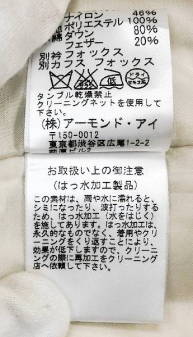 ナイロン 46%
ポリエステル 100%
ダウン 80%
フェザー 20%
別衿 フォックス
別カフス フォックス
ドライ
タンブル乾燥禁止
クリーニングネットを使用して
下さい。
(株)アーモンド・アイ
〒150-0012
東京都渋谷区広尾1-2-2
お取扱い上の御注意
(はっ水加工製品)
この素材は、雨や水に濡れると、
シミになったり、波打ったりする
ため、はっ水加工(水をはじく)
を施してあります。はっ水加工は、
永久的なものでなく、着用やクリ
ーニングをくり返すことにより、
効果が低下しますので、クリーニ
ングの際に再加工をクリーニング
店へ依頼して下さい。